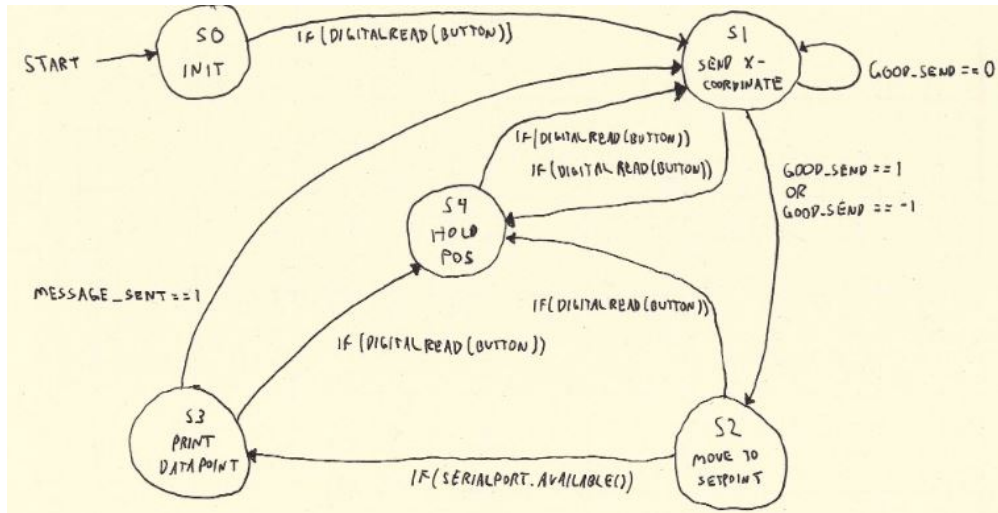 START
S0
INIT
IF(DIGITALREAD(BUTTON))
S1
SEND X-
COORDINATE
GOOD_SEND==0
IF(DIGITALREAD(BUTTON))
IF(DIGITALREAD(BUTTON))
GOOD_SEND==1
OR
GOOD_SEND== -1
S4
HOLD
POS
MESSAGE_SENT==1
IF(DIGITALREAD(BUTTON))
IF(DIGITALREAD(BUTTON))
S3
PRINT
DATAPOINT
S2
MOVE TO
SETPOINT
IF(SERIALPORT.AVAILABLE())